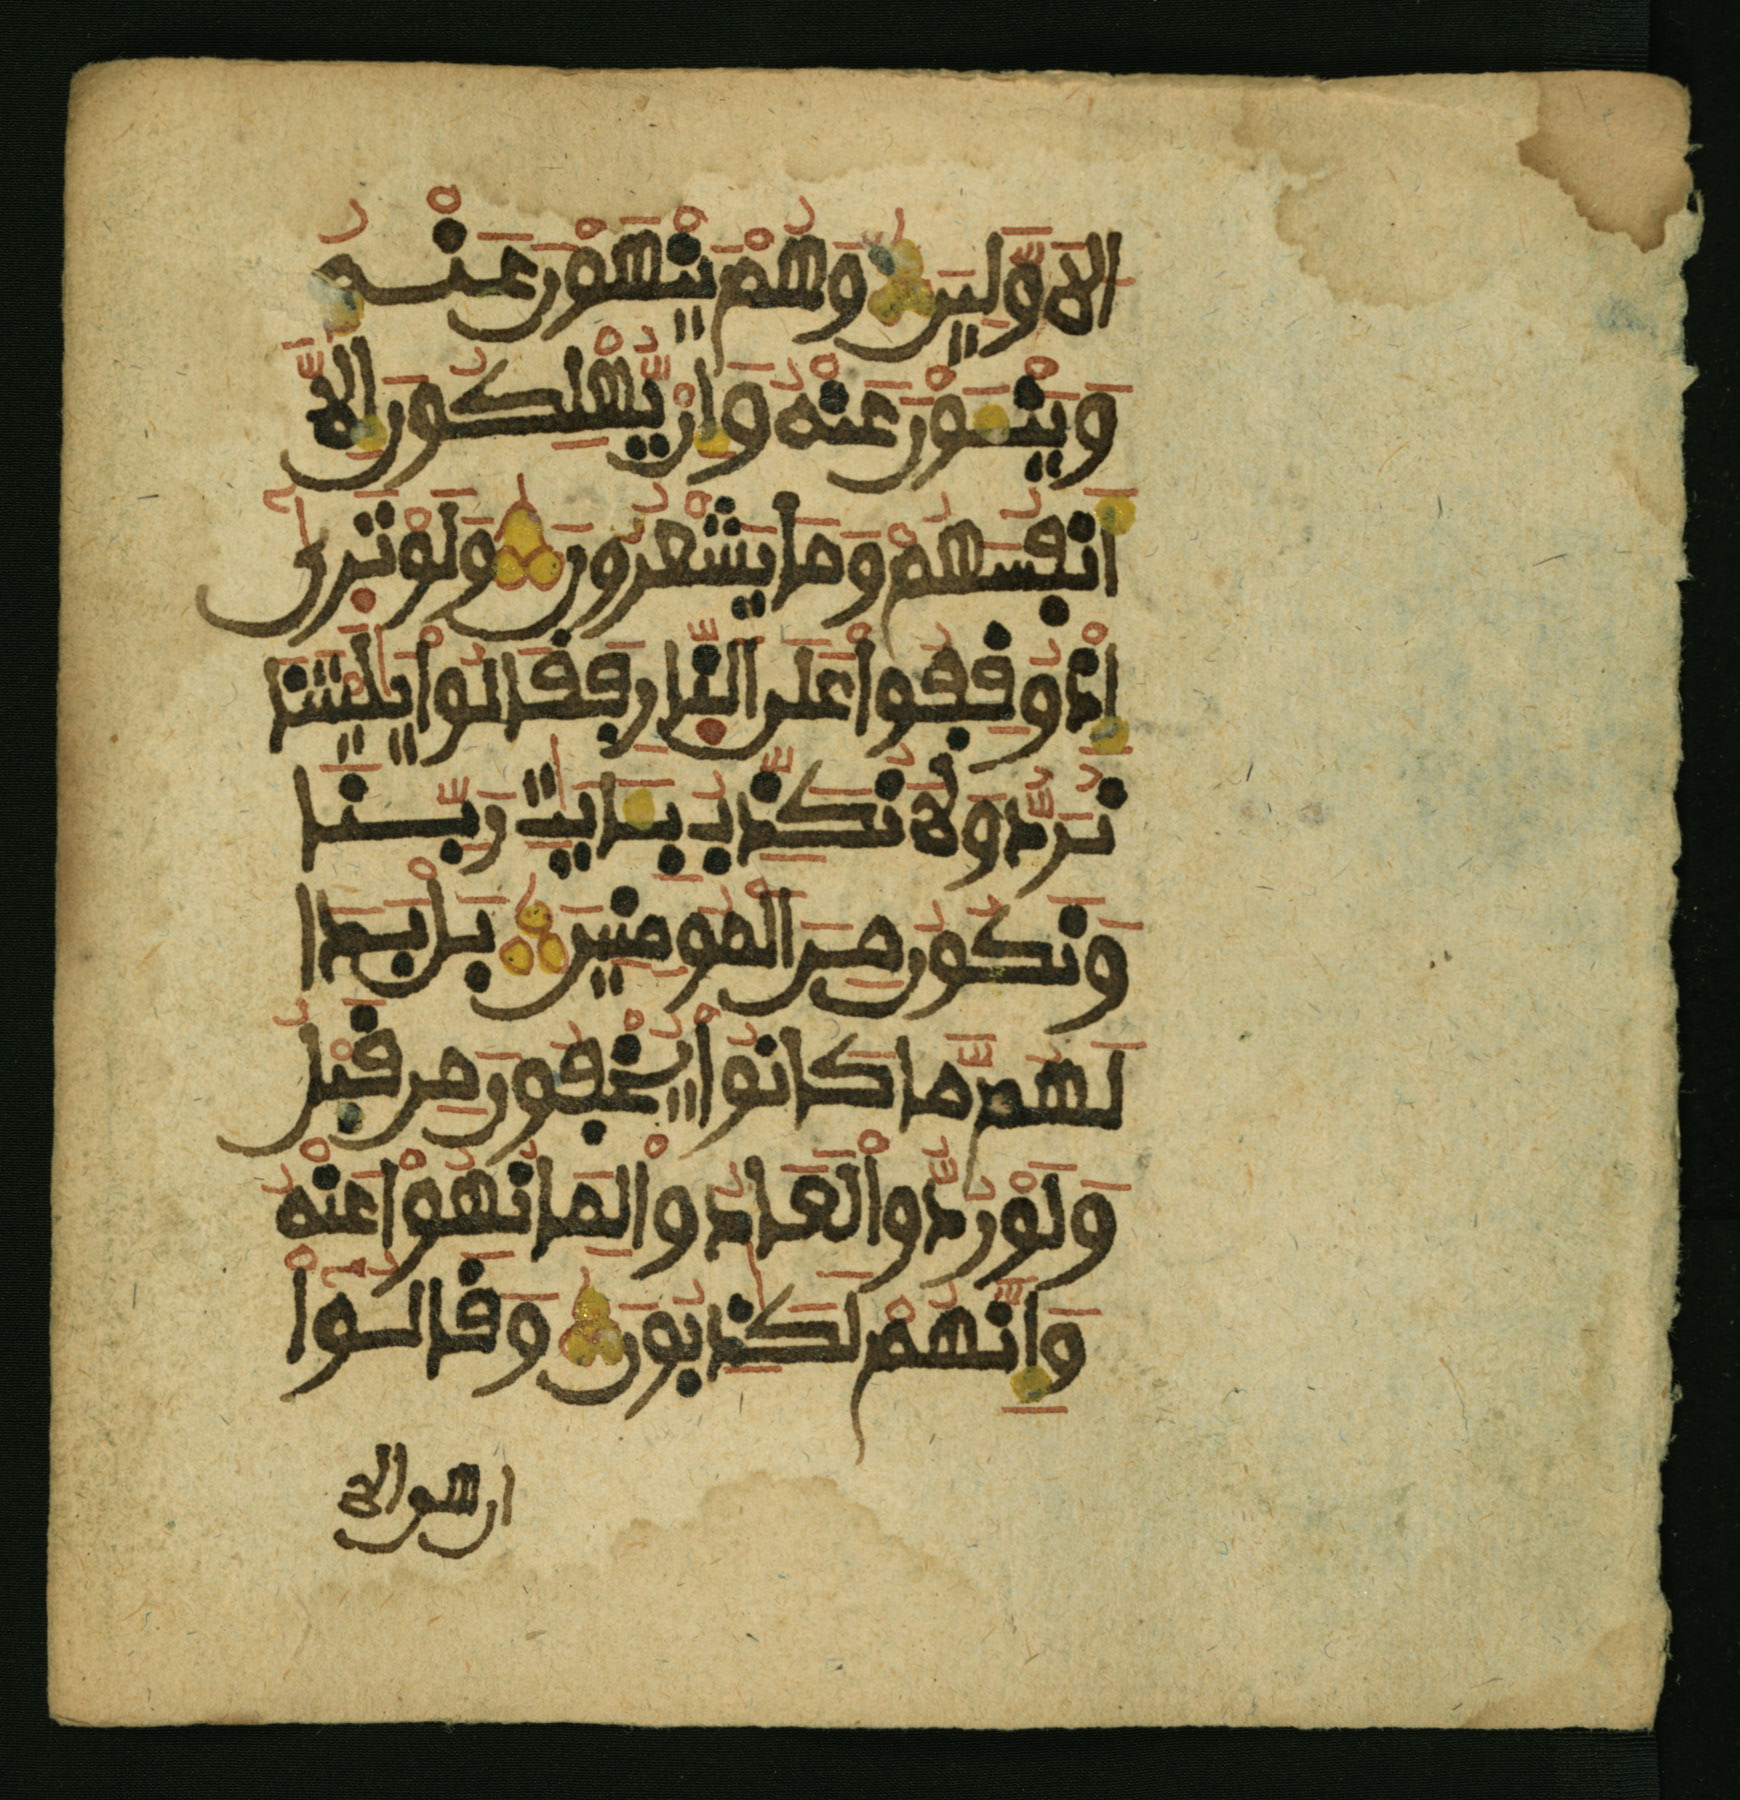 الَاوَّلِينَ وَهُمْ يَنْهَوْنَ عَنْهُ
وَيَنْـَٔوْنَ عَنْهُ وَإِنْ يُّهْلِكُونَ إِلَّآ
أَنفُسَهُمْ وَمَا يَشْعُرُونَ وَلَوْ تَرَىٰٓ
إِذْ وُقِفُواْ عَلَى النَّارِ فَقَالُواْ يَٰلَيْتَنَا
نُرَدُّ وَلَا نُكَذِّبُ بِـَٔايَٰتِ رَبِّنَا
وَنَكُونُ مِنَ الْمُومِنِينَ بَلْ بَدَا
لَهُم مَّا كَانُواْ يُخْفُونَ مِن قَبْلُ
وَلَوْ رُدُّواْ لَعَادُواْ لِمَا نُهُواْ عَنْهُ
وَإِنَّهُمْ لَكَٰذِبُونَ وَقَالُوٓاْ
ان هى الا